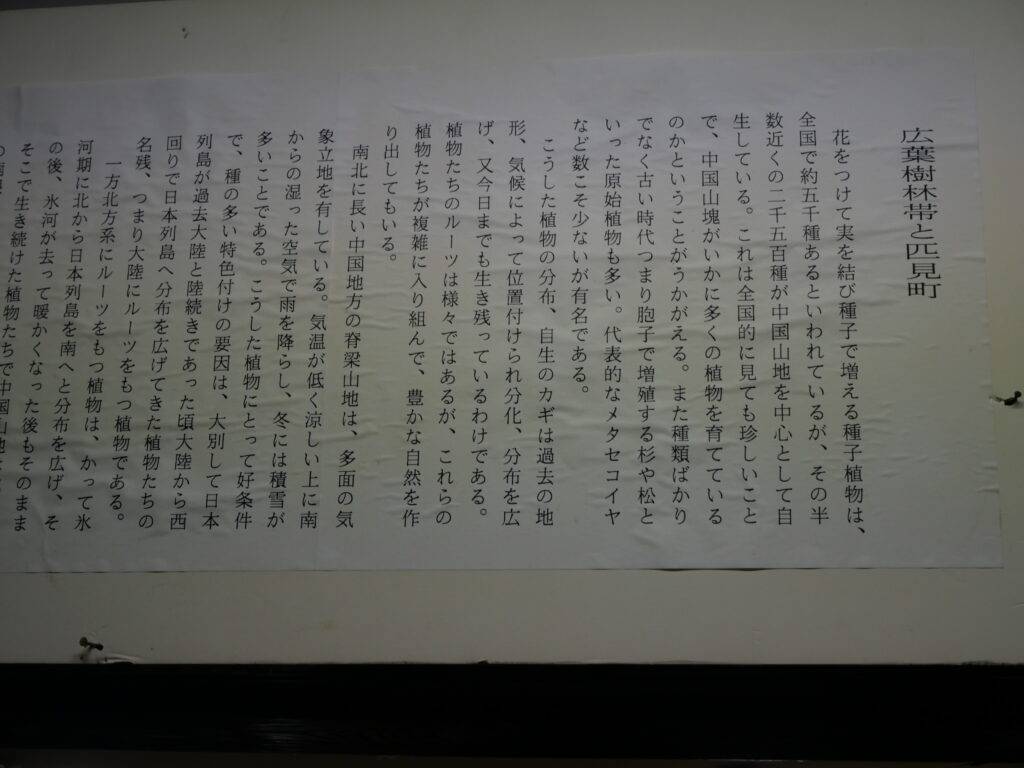 広葉樹林帯と匹見町
花をつけて実を結び種子で増える種子植物は、
全国で約五千種あるといわれているが、その半
数近くの二千五百種が中国山地を中心として自
生している。これは全国的に見ても珍しいこと
で、中国山塊がいかに多くの植物を育てている
のかということがうかがえる。また種類ばかり
でなく古い時代つまり胞子で増殖する杉や松と
いった原始植物も多い。代表的なメタセコイヤ
など数こそ少ないが有名である。
こうした植物の分布、自生のカギは過去の地
形、気候によって位置付けられ分化、分布を広
げ、又今日までも生き残っているわけである。
植物たちのルーツは様々ではあるが、これらの
植物たちが複雑に入り組んで、豊かな自然を作
り出してもいる。
南北に長い中国地方の脊梁山地は、多面の気
象立地を有している。気温が低く涼しい上に南
からの湿った空気で雨を降らし、冬には積雪が
多いことである。こうした植物にとって好条件
で、種の多い特色付けの要因は、大別して日本
列島が過去大陸と陸続きであった頃大陸から西
回りで日本列島へ分布を広げてきた植物たちの
名残、つまり大陸にルーツをもつ植物である。
一方北方系にルーツをもつ植物は、かって氷
河期に北から日本列島を南へと分布を広げ、そ
の後、氷河が去って暖かくなった後もそのまま
そこで生き続けた植物たちで中国山地